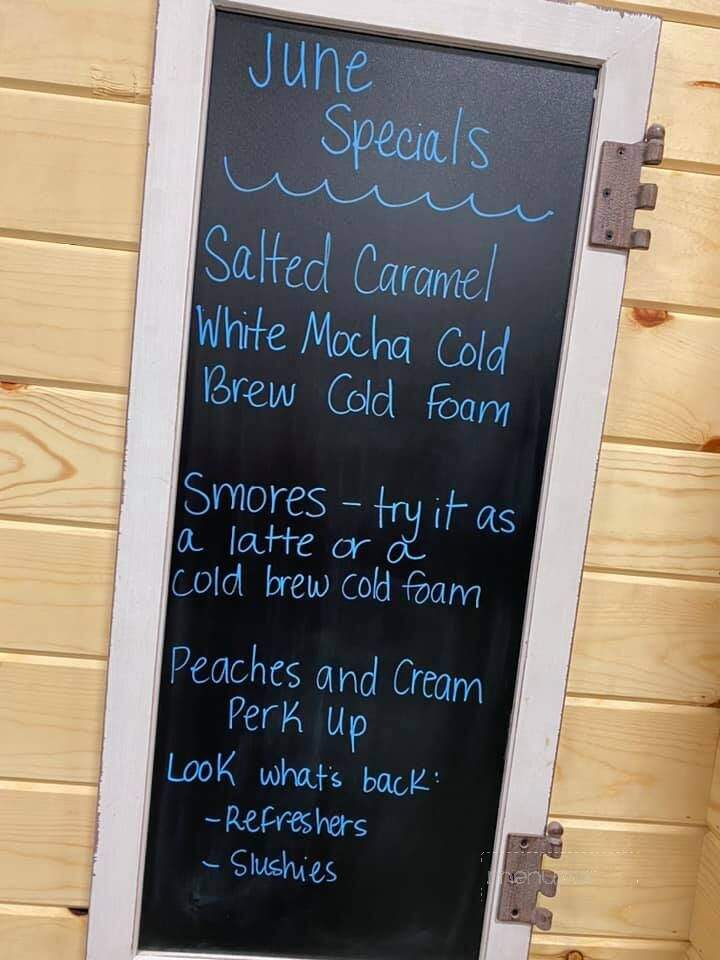 June
Specials
Salted Caramel
White Mocha Cold
Brew Cold Foam
Smores - try it as
a latte or a
cold brew cold foam
Peaches and Cream
Perk Up
Look what's back:
- Refreshers
- Slushies